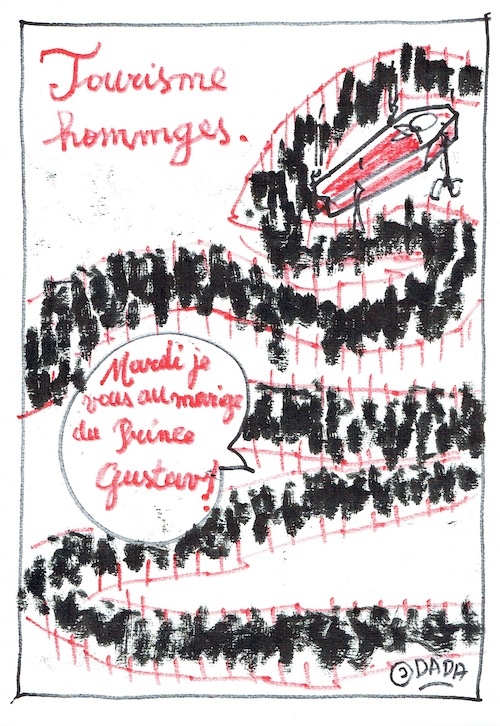 Tourisme
hommges.
Mardi je
vous au marige
du Prince
Gustav!
©DADA